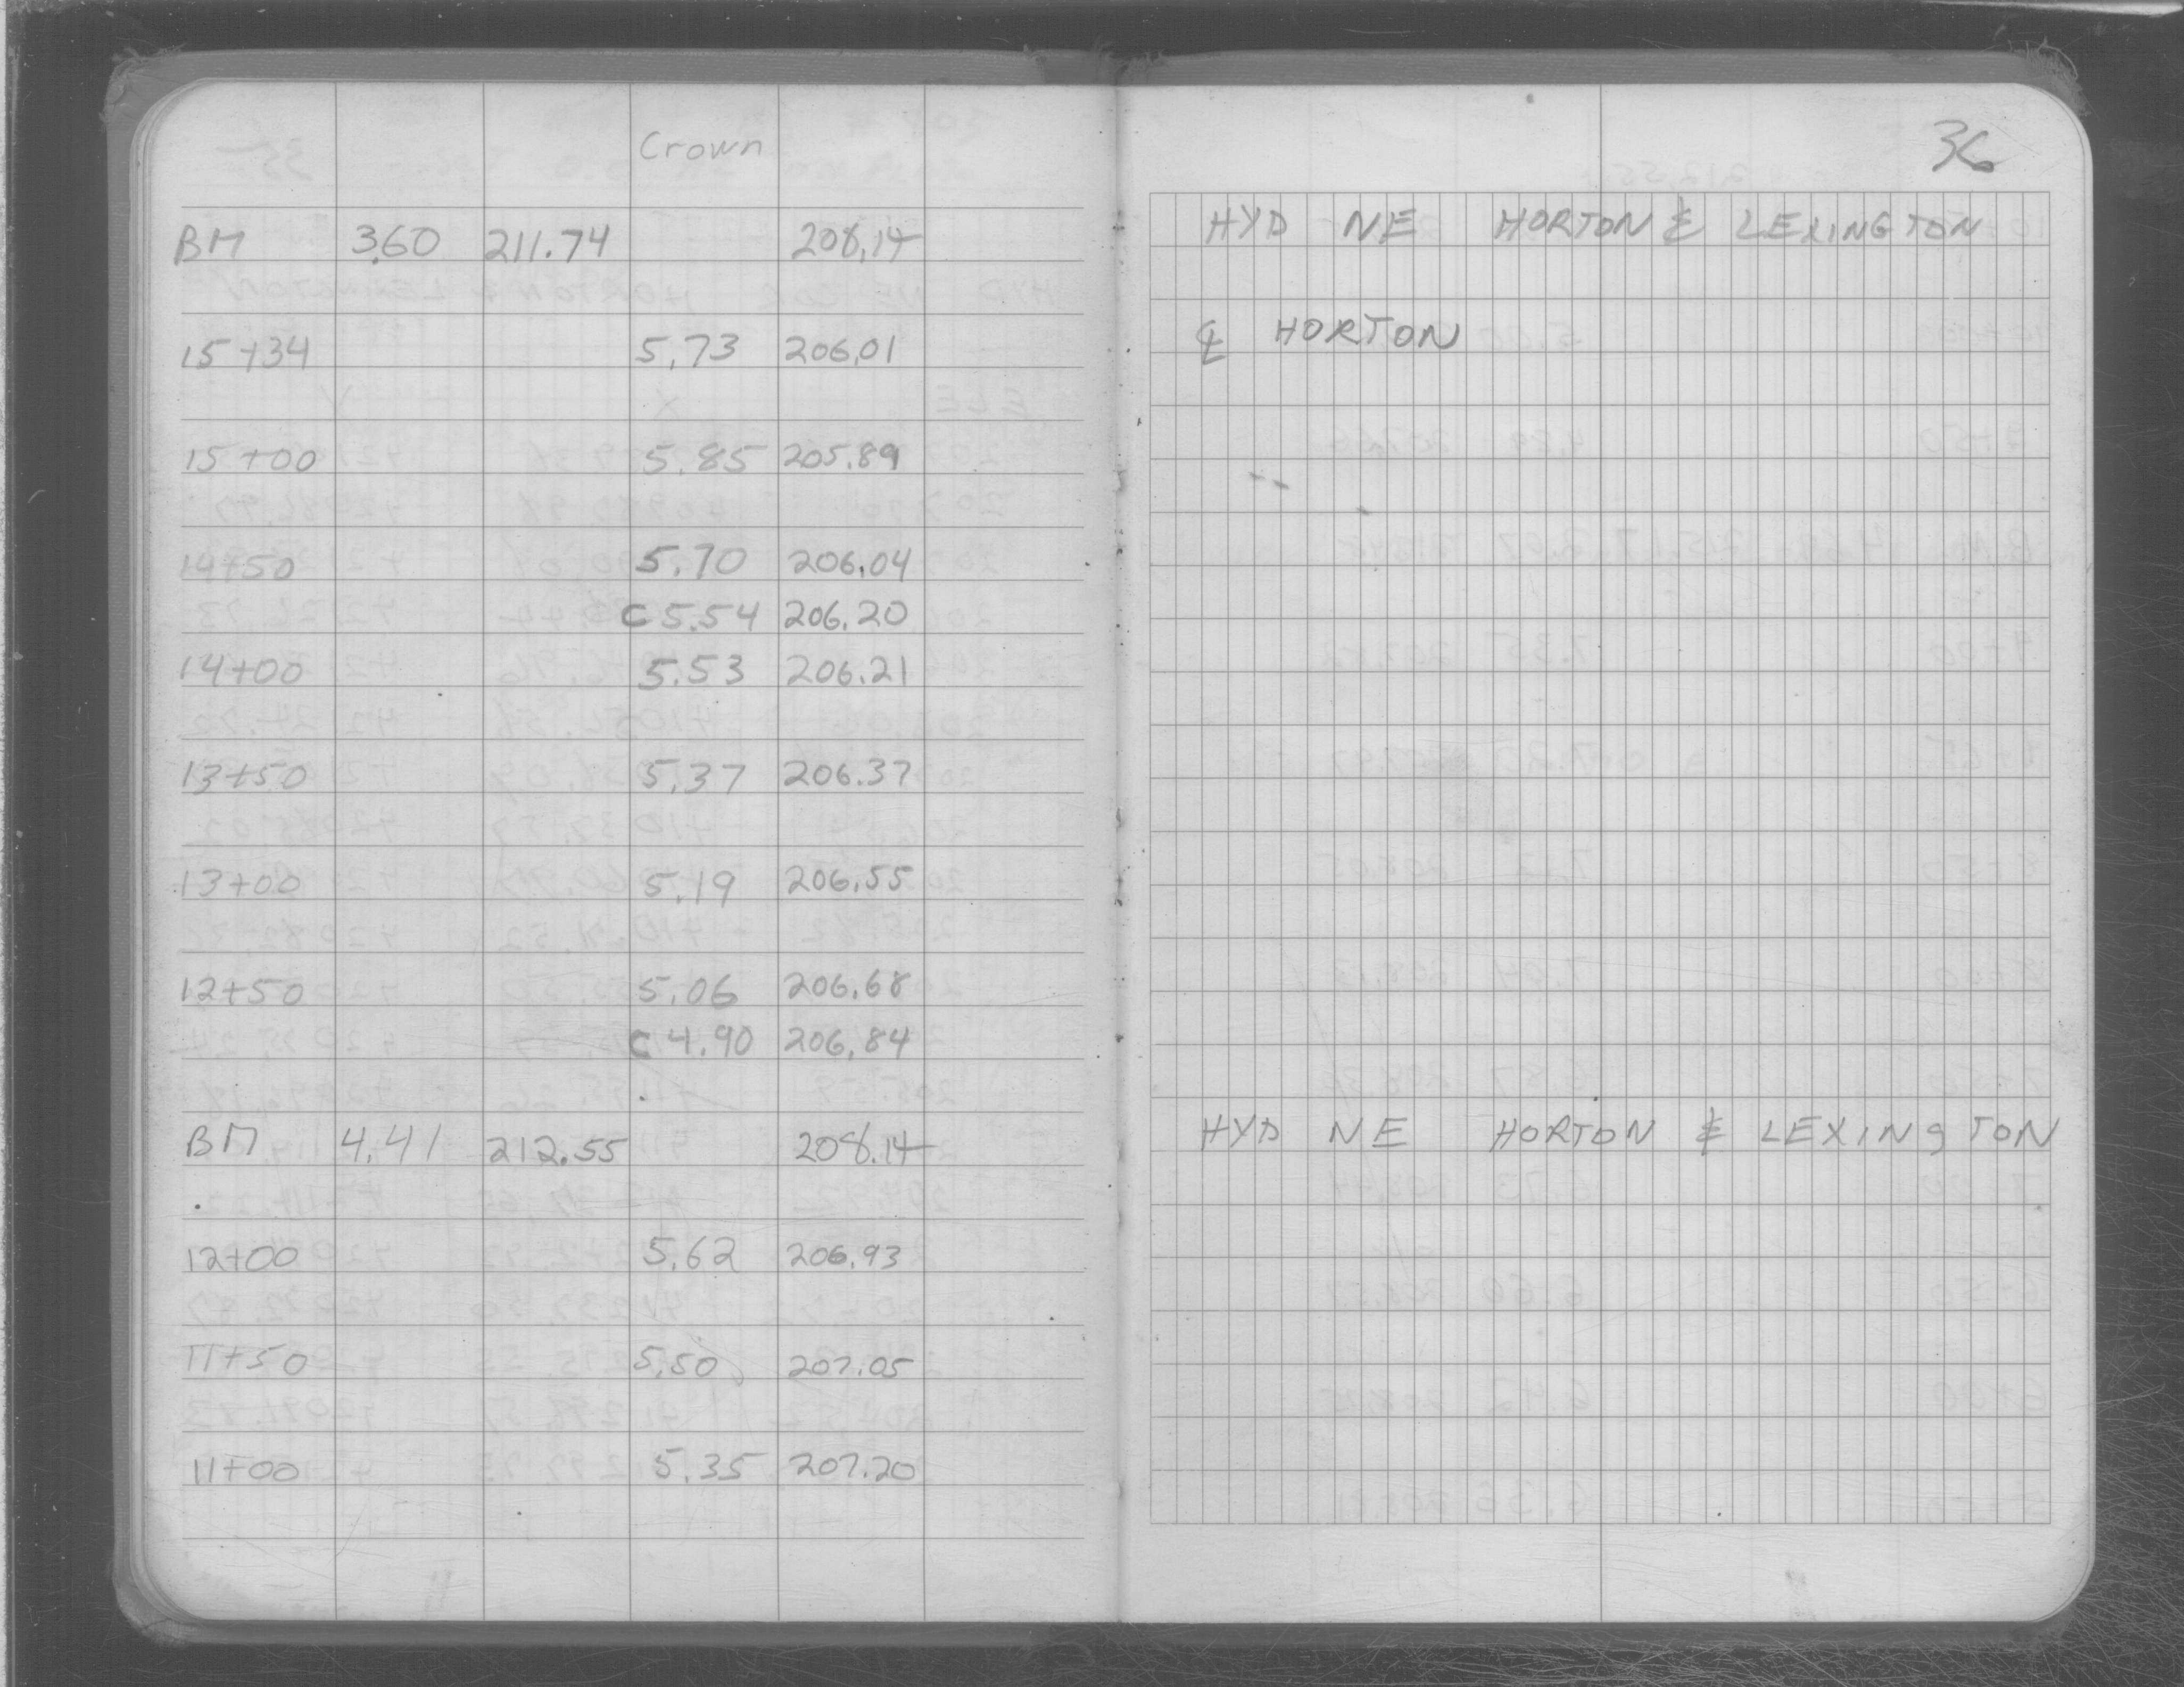 Crown
BM 3.60 211.74 208.14
15+34 5.73 206.01
15+00 5.85 205.89
14+50 5.70 206.04
C 5.54 206.20
14+00 5.53 206.21
13+50 5.37 206.37
13+00 5.19 206.55
12+50 5.06 206.68
C 4.90 206.84
BM 4.41 212.55 208.14
12+00 5.62 206.93
11+50 5.50 207.05
11+00 5.35 207.20
36
HYD NE HORTON & LEXINGTON
℄ HORTON
HYD NE HORTON & LEXINGTON